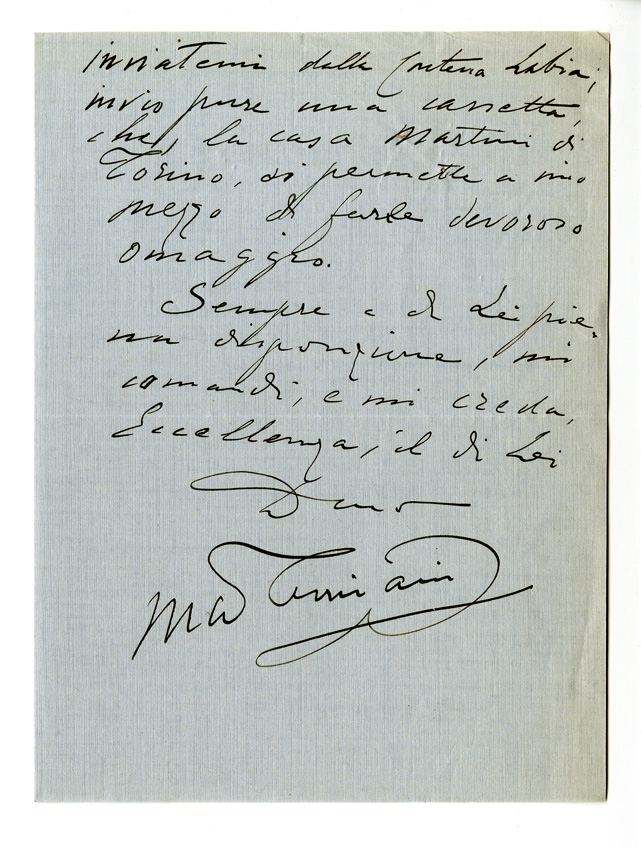 inviatemi dalla Contessa Labia;
invio pure una cassetta,
che, la casa Martini di
Torino, si permette a mio
mezzo di farLe devoroso
omaggio.
Sempre a di Lei pie-
na disposizione, mi
comandi, e mi creda,
Eccellenza, il di Lei